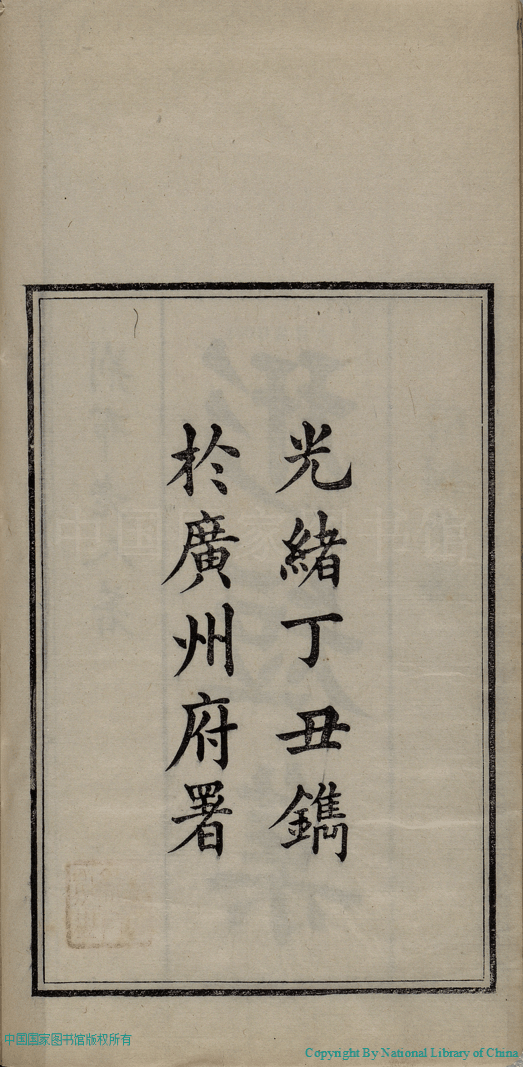 光緒丁丑鐫
於廣州府署
中国国家图书馆版权所有
Copyright By National Library of China